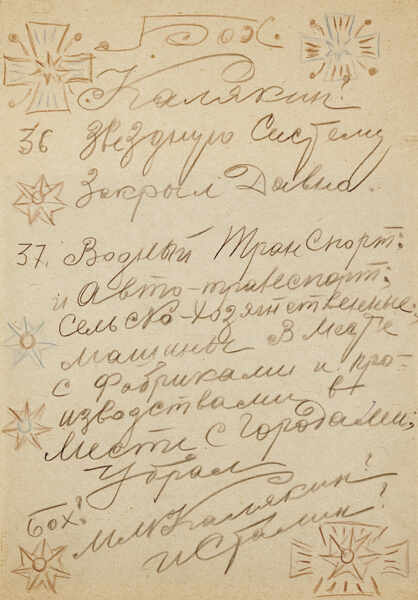 Бох.
Калякин!
36 Звездную Систему
Закрыл Давно.
37. Водный Транспорт:
и Авто-транспорт:
Сельско-Хозятственные
машиные В месте
с Фабриками и про-
изводствами в
Месте С Городами,
Убрал
Бох! Калякин!
и Сталин!